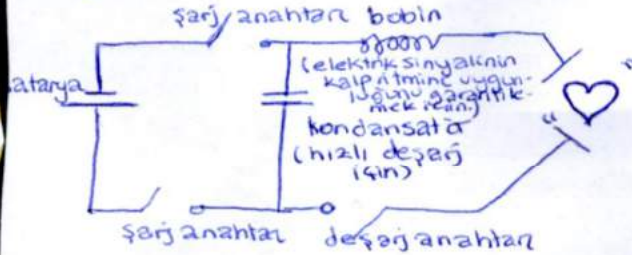 şarj anahtarı bobin
(elektrik sinyalinin
kalp ritmine uygun-
luğunu garantile-
mek için.)
atarya
kondansatö
(hızlı deşarj
için)
şarj anahtarı deşarj anahtarı